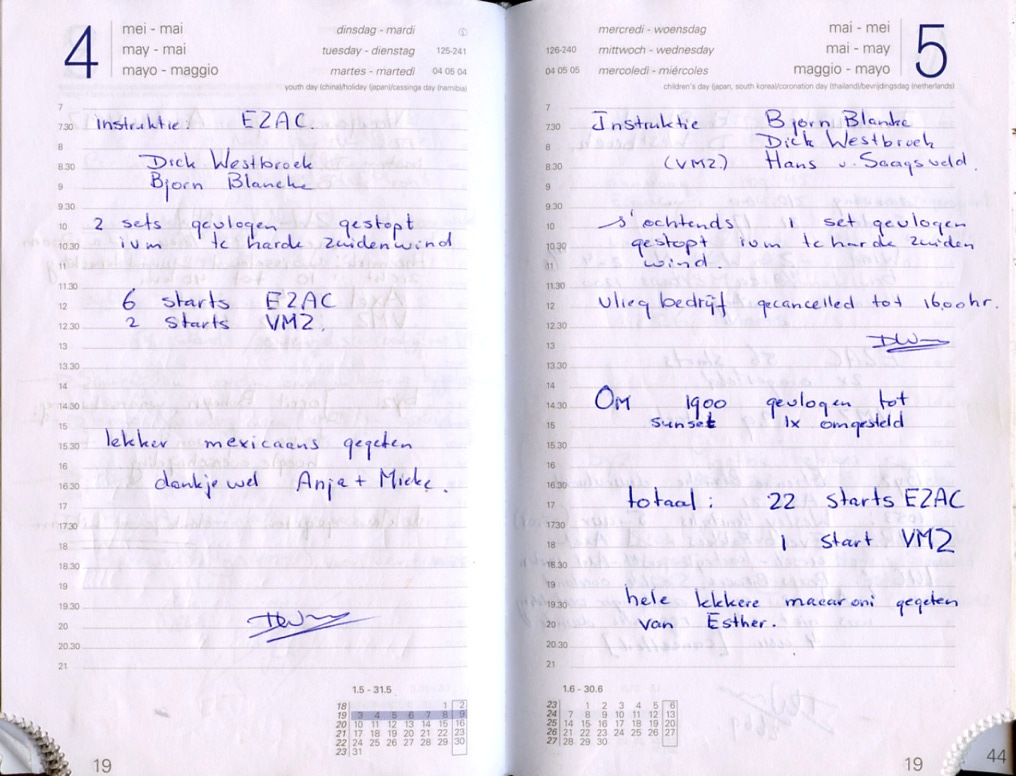 4
mei - mai
may - mai
mayo - maggio
dinsdag - mardi
tuesday - dienstag
125-241
martes - martedi
04 05 04
youth day (china)/holiday (japan)/cassinga day (namibia)
7
7.30 Instruktie: EZAC.
8
8.30 Dick Westbroek
9 Bjorn Blancke
9.30
10 2 sets gevlogen gestopt
10.30 ivm te harde zuidenwind
11
11.30
12 6 starts EZAC
12.30 2 starts VMZ.
13
13.30
14
14.30
15
15.30 lekker mexicaans gegeten
16
16.30 dankjewel Anja + Mieke.
17
17.30
18
18.30
19
19.30
20
20.30
21
1.5 - 31.5
18 1 2
19 3 4 5 6 7 8 9
20 10 11 12 13 14 15 16
21 17 18 19 20 21 22 23
22 24 25 26 27 28 29 30
23 31
19
mercredi - woensdag
mei - mai
5
126-240
mittwoch - wednesday
mai - may
04 05 05
mercoledi - miércoles
maggio - mayo
children's day (japan, south korea)/coronation day (thailand)/bevrijdingsdag (netherlands)
7
7.30 Instruktie Bjorn Blanke
8 Dick Westbroek
8.30 (VMZ) Hans v. Saagsveld.
9
9.30
10 s'ochtends 1 set gevlogen
10.30 gestopt ivm te harde zuiden
11 wind.
11.30
12 Vliegbedrijf gecancelled tot 16.00hr.
12.30
13
13.30
14
14.30 Om 1900 gevlogen tot
15 sunset 1x omgesteld
15.30
16
16.30
17 totaal: 22 starts EZAC
17.30
18 1 start VMZ
18.30
19
19.30 hele lekkere macaroni gegeten
20 van Esther.
20.30
21
1.6 - 30.6
23 1 2 3 4 5 6
24 7 8 9 10 11 12 13
25 14 15 16 17 18 19 20
26 21 22 23 24 25 26 27
27 28 29 30
19
44